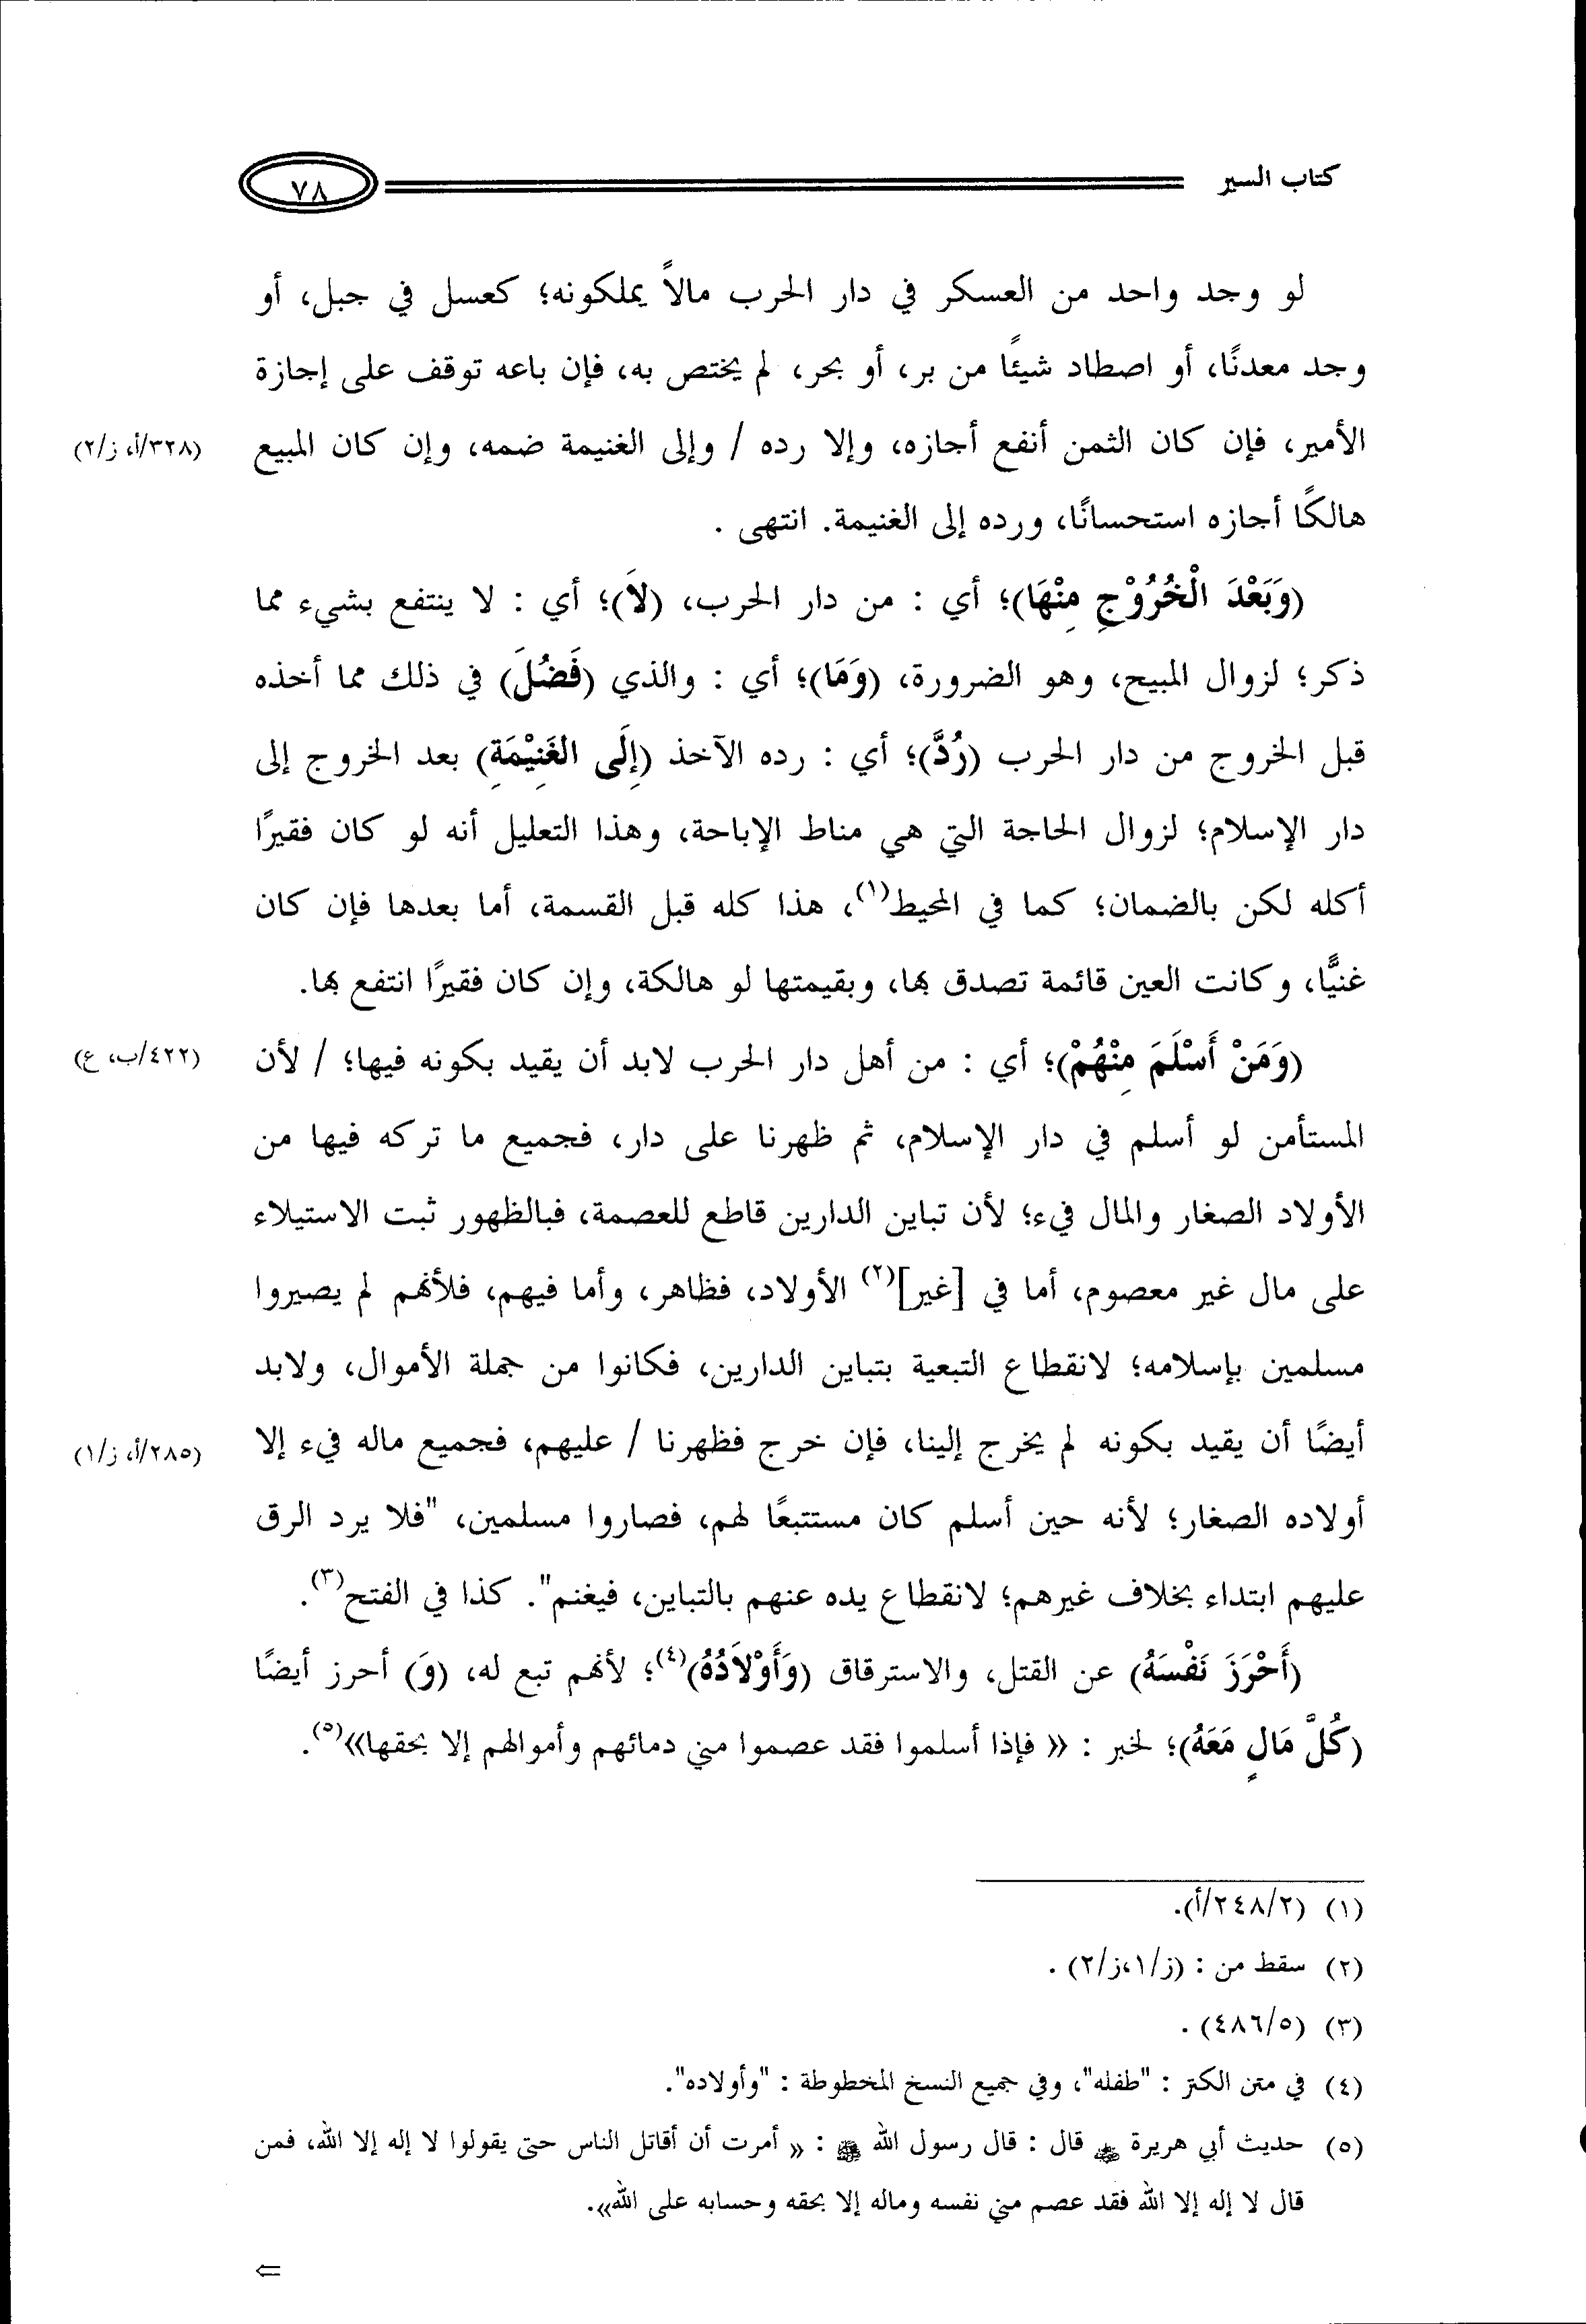 كتاب السير
٧٨
لو وجد واحد من العسكر في دار الحرب مالاً يملكونه؛ كعسل في جبل، أو
وجد معدنًا، أو اصطاد شيئًا من بر، أو بحر، لم يختص به، فإن باعه توقف على إجازة
الأمير، فإن كان الثمن أنفع أجازه، وإلا رده / وإلى الغنيمة ضمه، وإن كان المبيع
(٣٢٨/أ، ز/٢)
هالكًا أجازه استحسانًا، ورده إلى الغنيمة. انتهى .
(وَبَعْدَ الْخُرُوْجِ مِنْهَا)؛ أي : من دار الحرب، (لاَ)؛ أي : لا ينتفع بشيء مما
ذكر؛ لزوال المبيح، وهو الضرورة، (وَمَا)؛ أي : والذي (فَضُلَ) في ذلك مما أخذه
قبل الخروج من دار الحرب (رُدَّ)؛ أي : رده الآخذ (إِلَى الغَنِيْمَةِ) بعد الخروج إلى
دار الإسلام؛ لزوال الحاجة التي هي مناط الإباحة، وهذا التعليل أنه لو كان فقيرًا
أكله لكن بالضمان؛ كما في المحيط(١)، هذا كله قبل القسمة، أما بعدها فإن كان
غنيًّا، وكانت العين قائمة تصدق بها، وبقيمتها لو هالكة، وإن كان فقيرًا انتفع بها.
(وَمَنْ أَسْلَمَ مِنْهُمْ)؛ أي : من أهل دار الحرب لابد أن يقيد بكونه فيها؛ / لأن
(٤٢٢/ب، ع)
المستأمن لو أسلم في دار الإسلام، ثم ظهرنا على دار، فجميع ما تركه فيها من
الأولاد الصغار والمال فيء؛ لأن تباين الدارين قاطع للعصمة، فبالظهور ثبت الاستيلاء
على مال غير معصوم، أما في [غير](٢) الأولاد، فظاهر، وأما فيهم، فلأنهم لم يصيروا
مسلمين بإسلامه؛ لانقطاع التبعية بتباين الدارين، فكانوا من جملة الأموال، ولابد
أيضًا أن يقيد بكونه لم يخرج إلينا، فإن خرج فظهرنا / عليهم، فجميع ماله فيء إلا
(٢٨٥/أ، ز/١)
أولاده الصغار؛ لأنه حين أسلم كان مستتبعًا لهم، فصاروا مسلمين، "فلا يرد الرق
عليهم ابتداء بخلاف غيرهم؛ لانقطاع يده عنهم بالتباين، فيغنم". كذا في الفتح(٣).
(أَحْرَزَ نَفْسَهُ) عن القتل، والاسترقاق (وَأَوْلاَدُهُ)(٤)؛ لأنهم تبع له، (وَ) أحرز أيضًا
(كُلَّ مَالٍ مَعَهُ)؛ لخبر : «فإذا أسلموا فقد عصموا مني دمائهم وأموالهم إلا بحقها»(٥).
(١) (٢٤٨/٢/أ).
(٢) سقط من : (ز/١،ز/٢) .
(٣) (٤٨٦/٥) .
(٤) في متن الكتر : "طفله"، وفي جميع النسخ المخطوطة : "وأولاده".
(٥) حديث أبي هريرة ﵁ قال : قال رسول الله ﷺ : «أمرت أن أقاتل الناس حتى يقولوا لا إله إلا الله، فمن
قال لا إله إلا الله فقد عصم مني نفسه وماله إلا بحقه وحسابه على الله».
⇐